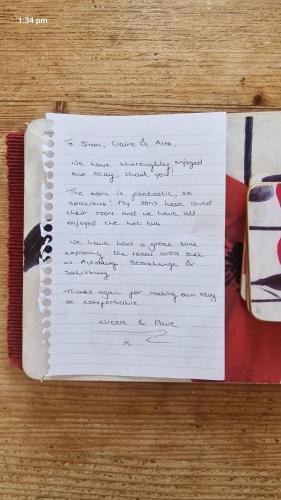 1:34 pm
To Simon, Claire & Alex,
We have thoroughly enjoyed
our stay, thank you!
The barn is fantastic, so
spacious! My sons have loved
their room and we have all
enjoyed the hot tub.
We have had a great time
exploring the local area such
as Avebury, Stonehenge &
Salisbury.
Thanks again for making our stay
so comfortable.
Nicole & Dave
x